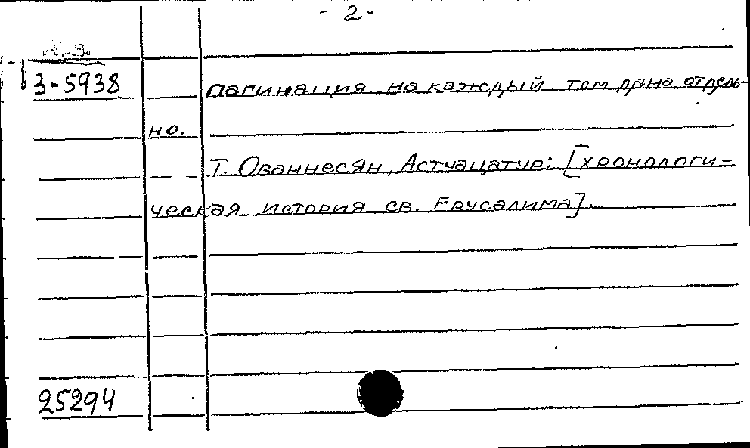 - 2 -
3-5938
пагинация на каждый том дана отдель-
но.
Т. Ованнесян, Астчацатир: [хронологи-
ческая история св. Ерусалима].
25294